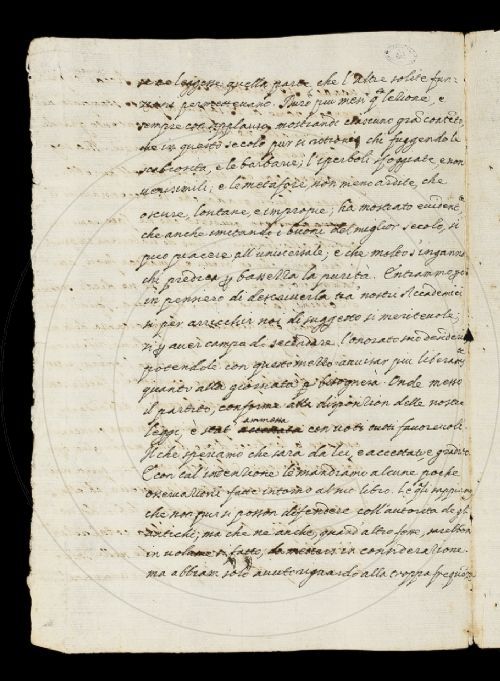 se ne leggesse quella parte, che l'altre solite fun-
zioni permettevano. Durò più mesi q.ta lezione, e
sempre con applauso, mostrando ciascuno gra contēto,
che in questo secolo pur si ritrovi chi fuggendo le
scabrosità, e le barbarie; l'iperboli sfoggiate, e non
verisimili; e le metafore, non meno ardite, che
oscure, lontane, e improprie; ha mostrato evidentᵉ
che anche imitando i buoni del miglior secolo, si
può piacere all'universale; e che molto s'inganna
chi predica p bassezza la purità. Entrammo poi
in pensiero di descriverla tra nostri Accademici
sì per arricchir noi di suggetto sì meritevole;
sì p aver campo di secondare l'onorato suo
potendole con questo mezzo avvisar più liberamᵗᵉ
quanto alla giornata bisognerà. Onde messo
il partito, conforme alla disposizion delle nostre
leggi, è stat ammessa con voti tutti favorevoli.
Il che speriamo che sarà da lei, e accettato e gradito.
Con tal intenzione le mandiamo alcune poche
osservazioni fatte intorno al suo libro. Le q.li sappiamo
che non pur si posson difendere coll'autorità de gli
antichi, ma che ne anche, quand'altro fosse, sarebbon
in volume sì fatto, da mettersi in considerazione
ma abbiam solo avuto riguardo alla troppa frequēza